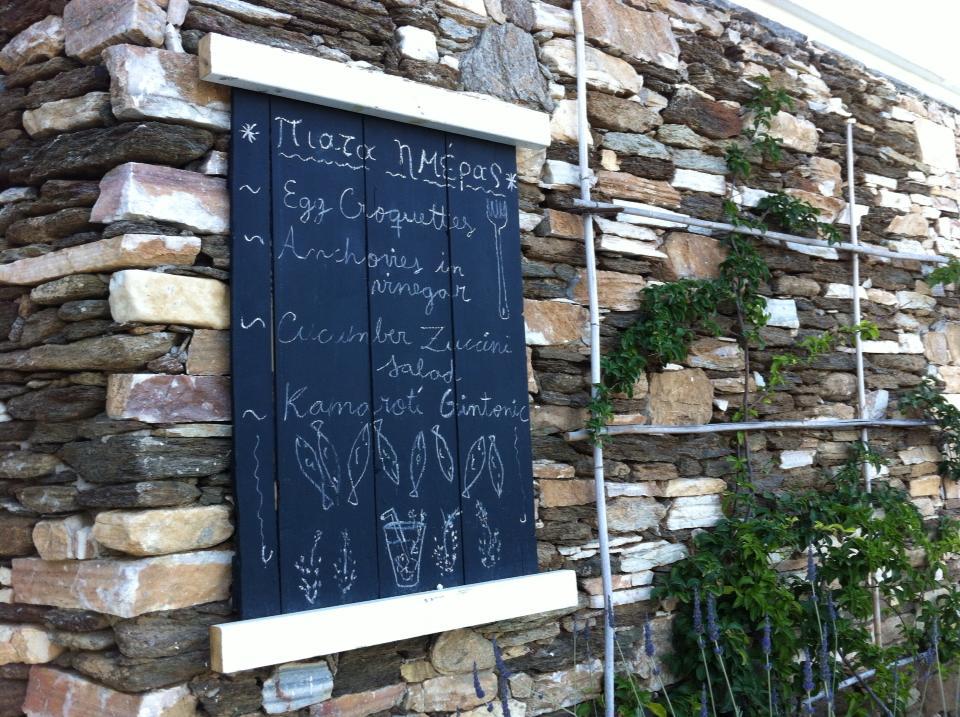 * Πιατα ημέρας *
~ Egg Croquettes
~ Anchovies in
vinegar
~ Cucumber Zuccini
salad
~ Kamarotí Gintonic